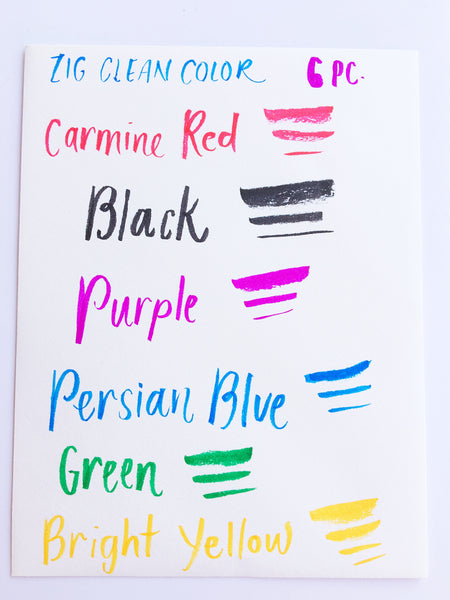 ZIG CLEAN COLOR 6 PC.
Carmine Red
Black
Purple
Persian Blue
Green
Bright Yellow